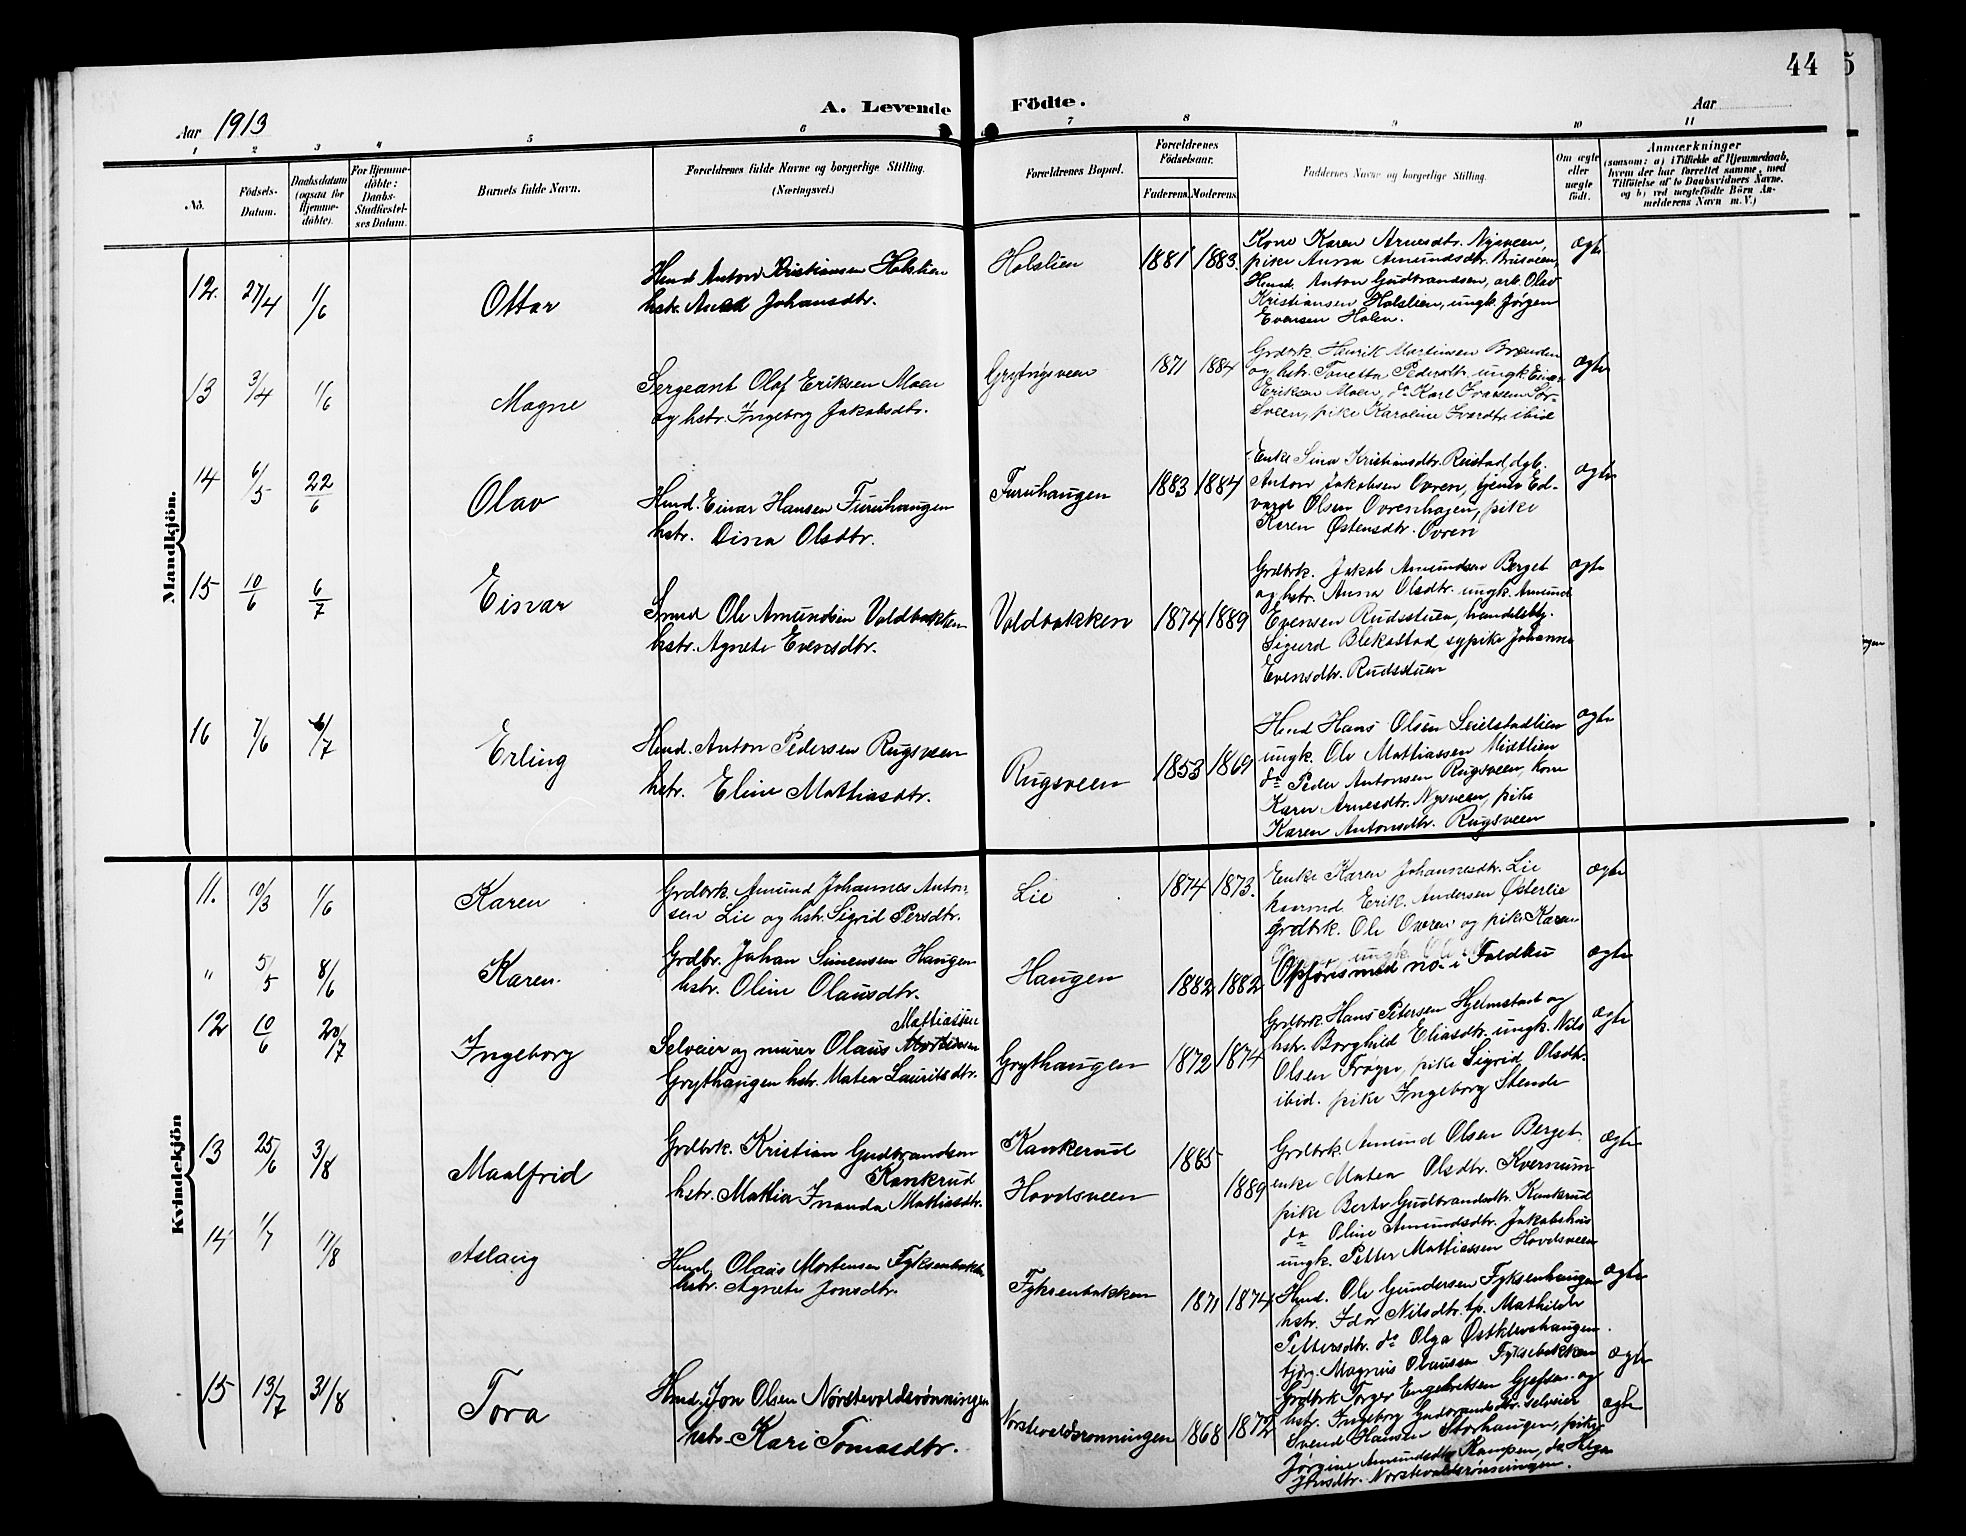 44
5
A. Levende Födte.
Aar 1913
Aar
1 2 3 4 5 6 7 8 9 10 11
Nö.
Födsels-Datum.
Daabsdatum (ogsaa for Hjemme-döbte).
For Hjemme-döbte: Daabs-Stadfæstelses Datum.
Barnets fulde Navn.
Forældrenes fulde Navne og borgerlige Stilling. (Næringsvei.)
Forældrenes Bopæl.
Forældrenes Födselsaar.
Faderens. Moderens.
Faddernes Navne og borgerlige Stilling.
Om ægte eller uægte födt.
Anmærkninger
(saasom: a) i Tilfælde af Hjemmedaab, hvem der har forrettet samme, med Tilföielse af to Daabsvidners Navne, og b) ved uægtefödte Börn Anmelderens Navn m. V.)
Mandkjön.
12. 27/4 1/6 Ottar
Hmd Anton Kristiansen Holslien
hstr. Anna Johansdtr.
Holslien 1881 1883.
Kone Karen Arnesdtr. Nysveen,
pike Anna Amundsdtr. Brusveen,
Hmd. Anton Gudbrandsen, arb. Olav
Kristiansen Holslien, ungk. Jörgen
Evensen Holen.
ægte
13 3/4 1/6 Magne
Sergeant Olaf Eriksen Moen
og hstr. Ingeborg Jakobsdtr.
1871 1884
Grdbrk. Henrik Martinsen Brænden
og hstr. Tonetta Pedersdtr. ungk. Einar
Eriksen Moen, do Karl Ivarsen Sör-
sveen, pike Karoline Ivarsdtr. ibid
ægte
14 6/5 22/6 Olav
Hmd. Einar Hansen Furuhaugen
hstr. Dina Olsdtr.
Furuhaugen 1883 1884
Enke Sina Kristiansdtr. Reistad, dgb.
Anton Jakobsen Ovren, tjener Ed-
vard Olsen Ovrenhagen, pike
Karen Østensdtr. Ovren
ægte
15 10/6 6/7 Einar
Smed Ole Amundsen Voldbakken
hstr. Agnete Evensdtr.
Voldbakken 1874 1889
Grdbrk. Jakob Amundsen Berget
og hstr. Anna Olsdtr. ungk. Amund
Evensen Rudsstuen, handelsbtj.
Sigurd Blekastad sypike Johanne
Evensdtr. Rudsstuen
ægte
16 7/6 6/7 Erling
Hmd. Anton Pedersen Rugsveen
hstr. Eline Mathiasdtr.
Rugsveen 1853 1869
Hmd Hans Olsen Seielstadlien
ungk. Ole Mathiassen Midtlien
do Peder Antonsen Rugsveen, Kone
Karen Arnesdtr. Nysveen, pike
Karen Antonsdtr. Rugsveen
ægte
Kvindekjön
11. 10/3 1/6 Karen
Grdbrk Amund Johannes Anton-
sen Lie og hstr. Sigrid Persdtr.
Lie 1874 1873.
Enke Karen Johannesdtr. Lie
kaarmd. Erik Andersen Østerlie
Grdbrk. Ole Ovren og pike Karen
ægte
" 5/5 8/6 Karen.
Grdbr. Johan Simensen Haugen
hstr. Oline Olausdtr.
Haugen 1882 1882
Opföres med no. i Foldbu
ægte
12 10/6 20/7 Ingeborg
Mathiassen
Selveier og murer Olaus Mortensen
Grythaugen hstr. Matea Lauritsdtr.
Grythaugen 1872 1874
Grdbrk. Hans Petersen Hjelmstad og
hstr. Borghild Eliasdtr. ungk. Nils
Olsen Tröge, pike Sigrid Olsdtr.
ibid. pike Ingeborg Stende
ægte
13 25/6 3/8 Maalfrid
Grdbrk. Kristian Gudbrandsen
Kankrud
hstr. Mathea Inanda Mathiasdtr.
Kankerud 1885
Hovdsveen 1889
Grdbrk. Amund Olsen Berget.
enke Matea Olsdtr. Kvernum
pike Berte Gudbrandsdtr. Kankrud
do Oline Amundsdtr. Jakobshus
ungk. Petter Mathiassen Hovdsveen
ægte
14 1/7 17/8 Aslaug
Hmd. Olaus Mortensen Fyksenbakken
hstr. Agnete Jonsdtr.
Fyksenbakken 1871 1874
Hmd. Ole Gundersen Fyksenhaugen
hstr. Idar Nilsdtr. tp. Mathilde
Pettersdtr. do Olga Østklevshaugen
tjg. Magnus Olaussen Fyksebakken
ægte
15 13/7 31/8 Tora
Hmd. Jon Olsen Norstevoldsrönningen
hstr. Kari Tomasdtr.
Norstevoldsronningen 1868 1872
Grdbrk. Torger Engebretsen Gjefsen og
hstr. Ingeborg Gudbrandsdtr. selveier
Svend Hansen Storhaugen, pike
Jörgine Amundsdtr. Kampen, do Helga
Jonsdtr. Norstevoldsrönningen.
ægte
ægte